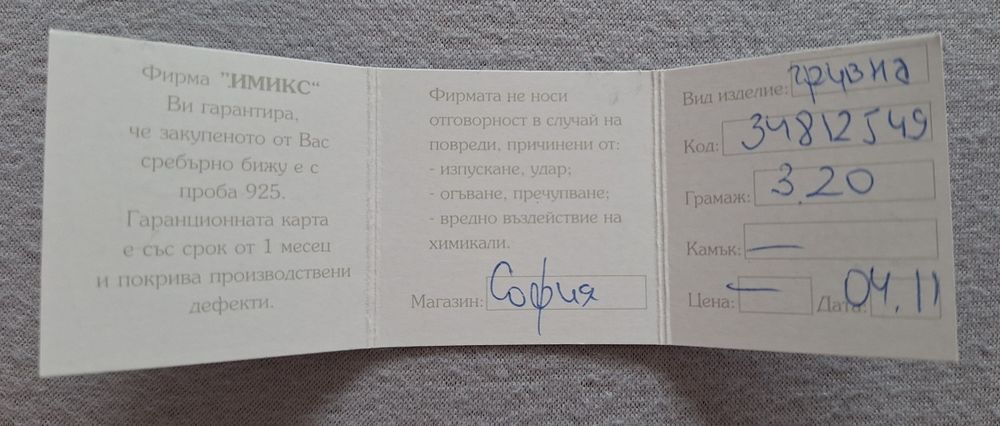 Фирма "ИМИКС“
Ви гарантира,
че закупеното от Вас
сребърно бижу е с
проба 925.
Гаранционната карта
е със срок от 1 месец
и покрива производствени
дефекти.
Фирмата не носи
отговорност в случай на
повреди, причинени от:
- изпускане, удар;
- огъване, пречупване;
- вредно въздействие на
химикали.
Магазин: София
Вид изделие: гривна
Код: 34812549
Грамаж: 3.20
Камък: —
Цена: — Дата: 04.11